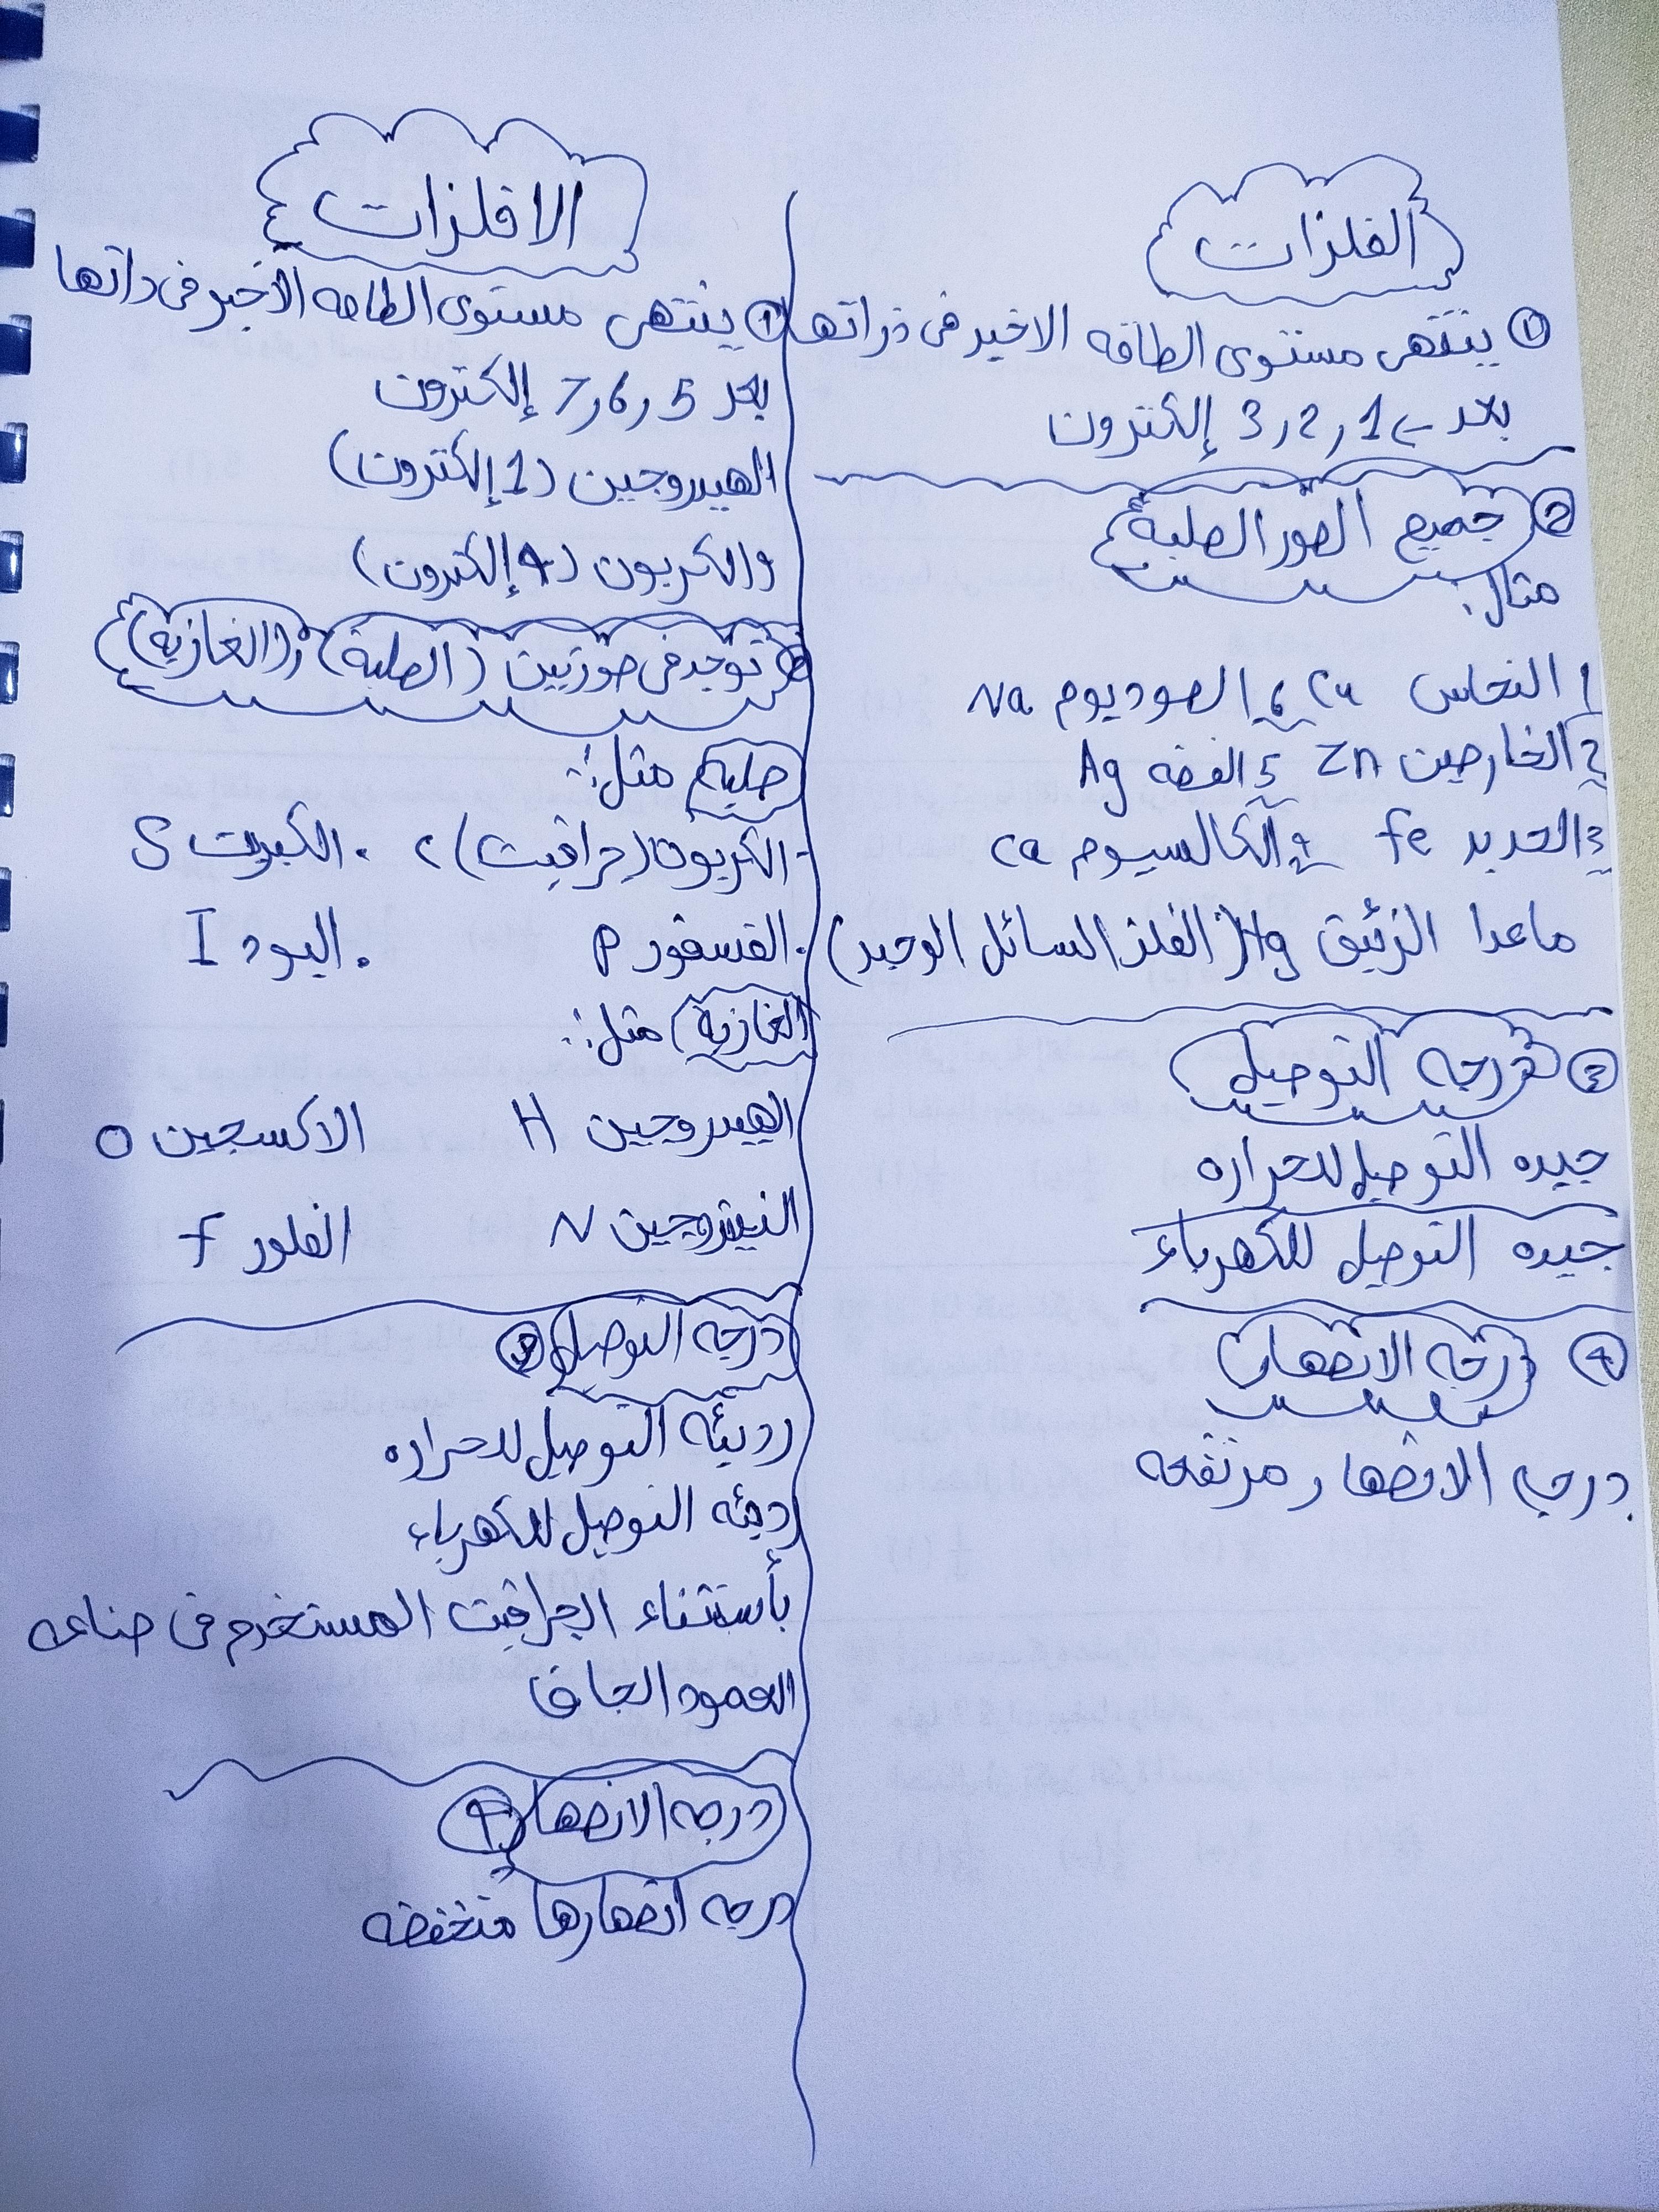 الفلزات
① ينتهى مستوى الطاقه الاخير فى ذراتها
بعد ← 1, 2, 3 إلكترون
② جميع الصور الصلبة
مثال:
1 النحاس Cu 6 الصوديوم Na
2 الخارصين Zn 5 الفضه Ag
3 الحديد fe 4 الكالسيوم Ca
ماعدا الزئبق Hg (الفلز السائل الوحيد)
③ درجه التوصيل
جيده التوصيل للحراره
جيده التوصيل للكهرباء
④ درجه الانصهار
درجه الانصهار مرتفعه
الافلزات
① ينتهى مستوى الطاقه الاخير فى ذراتها
بعد 5, 6, 7 إلكترون
الهيدروجين (1 إلكترون)
والكربون (4 إلكترون)
② توجد فى صورتين (الصلبة) و (الغازيه)
صلبه مثل:
. الكربون (جرافيت) C . الكبريت S
. الفسفور P . اليود I
الغازية مثل:
الهيدروجين H الاكسجين O
النيتروجين N الفلور f
درجه التوصيل ③
رديئه التوصيل للحراره
رديئه التوصيل للكهرباء
بأستثناء الجرافيت المستخدم فى صناعه
العمود الجاف
درجه الانصهار ④
درجه انصهارها منخفضه